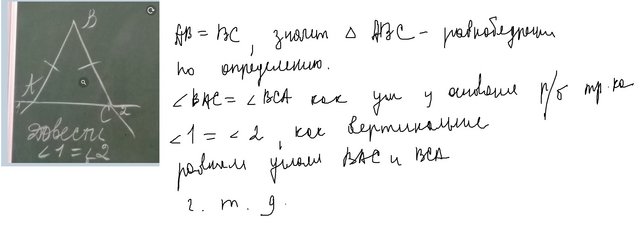 B
A
1
C 2
Довести
∠1=∠2
AB = BC, значит △ ABC - равнобедрен
по определению.
∠BAC = ∠BCA как угл у основания р/б тр.ка
∠1 = ∠2, как вертикальные
равным углам BAC и BCA
ч. т. д.